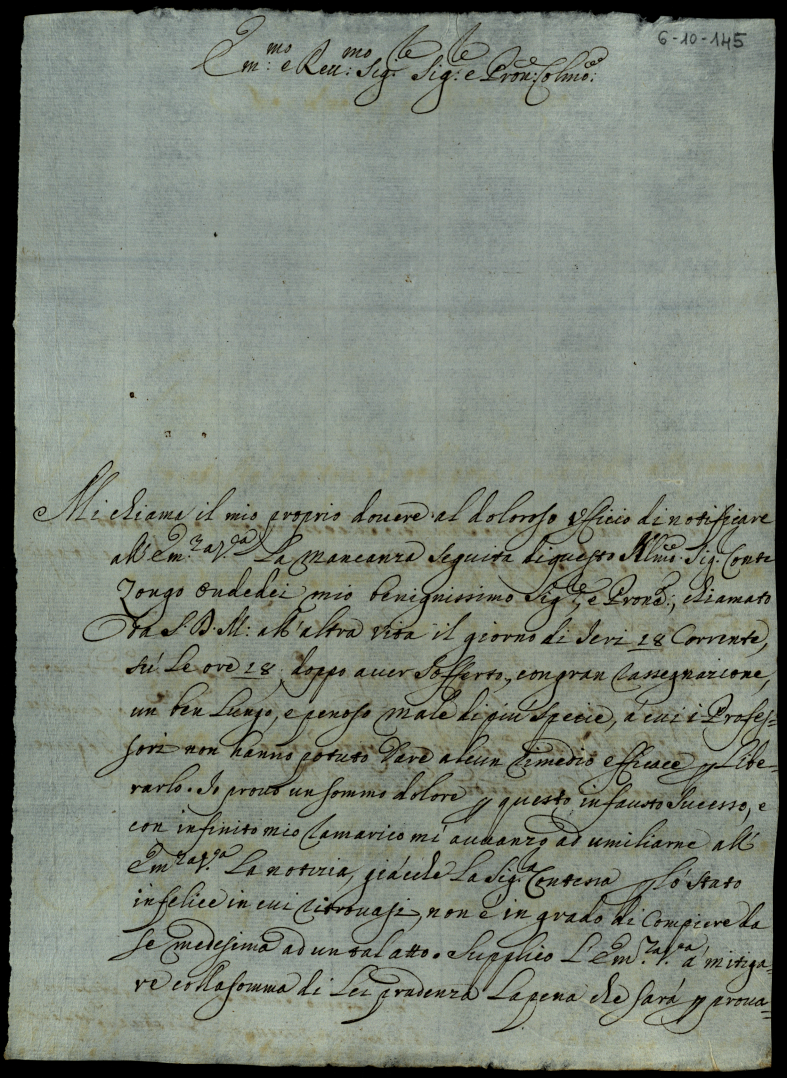 6-10-145
Em:mo e Reu:mo Sig:re Sig:re e Pron:e Colmo:
Mi chiama il mio proprio douere al doloroso Ufficio di notificare
all'Em:za V:ra La mancanza seguita di questo Sig: Conte
Zongo Ondedei mio benignissimo Sig:re, e Prone:, chiamato
da S. D. M: all'altra Vita il giorno di Ieri 18 Corrente,
sù Le ore 18, doppo auer Sofferto, con gran rassegnazione,
un ben Lungo, e penoso Male di più Specie, à cui i Profes=
sori non hanno potuto Dare alcun rimedio efficace p Libe=
rarlo. Io prouo un sommo dolore p questo infausto Sucesso, e
con infinito mio ramarico mi auuanzo ad umiliarne all'
Em:za V:ra La notizia, giàcche La Sig:ra Contessa p Lo Stato
infelice in cui ritrouasi, non è in grado di Compiere da
se medesima ad un tal atto. Supplico L'Em:za V:ra à mitiga=
re colla somma di Lei prudenza La pena che sarà p proua=